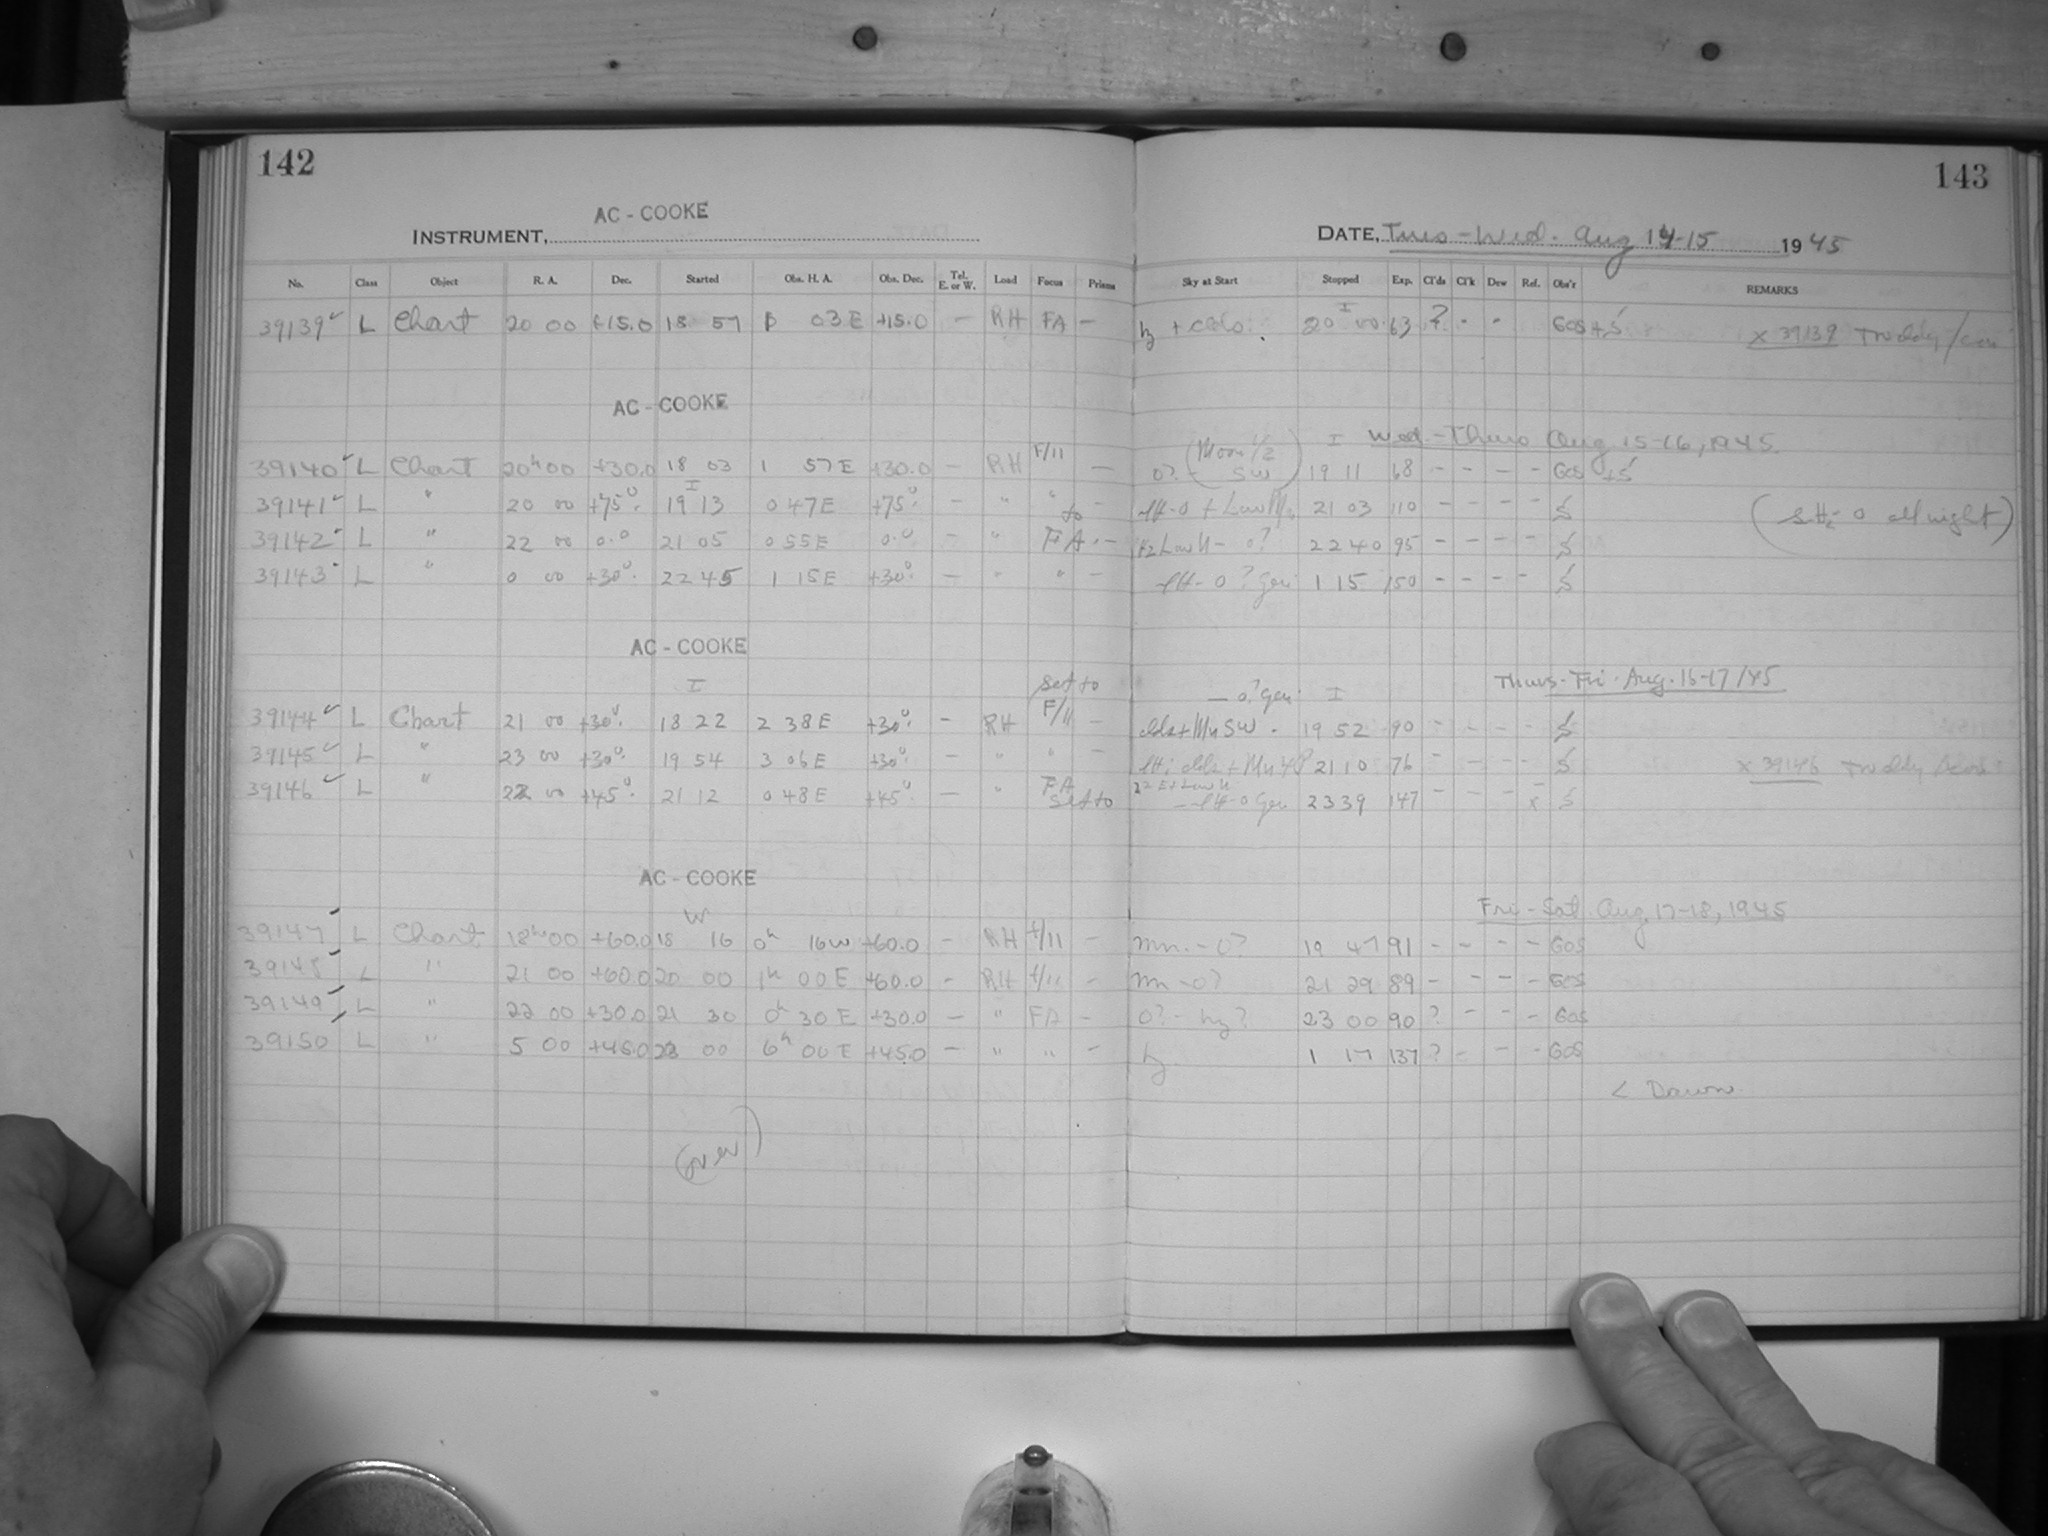 142
143
AC - COOKE
INSTRUMENT, DATE, Tues - Wed. Aug 14-15 1945
No. Class Object R. A. Dec. Started Obs. H. A. Obs. Dec. Tel. E. or W. Load Focus Prisms Sky at Start Stopped Exp. Cl'ds Cl'k Dew Ref. Obs'r REMARKS
I
39139 L Chart 20 00 +15.0 18 57 03 E +15.0 - RH FA - hz + 20 00 63 ? - - GOS + S x 39139
AC - COOKE
I Wed. - Thurs Aug 15-16, 1945
39140 L Chart 20h 00 +30.0 18 03 1 57 E +30.0 - RH F/11 - 0? - (Moon 1/2 SW) 19 11 68 - - - - GOS + S
I
39141 L " 20 00 +75°. 19 13 0 47 E +75°. - " " - 21 03 110 - - - - S
to
39142 L " 22 00 0.0 21 05 0 55 E 0.0 - " FA - - 0? 22 40 95 - - - - S
39143 L " 0 00 +30°. 22 45 1 15 E +30°. - " " - - 0? Gen 1 15 150 - - - - S
(0 all night)
AC - COOKE
Thurs - Fri. Aug. 16-17/45
I set to - 0? Gen. I
39144 L Chart 21 00 +30°. 18 22 2 38 E +30°. - RH F/11 - clds + Mn SW. 19 52 90 - - - - S
39145 L " 23 00 +30°. 19 54 3 06 E +30°. - " " - 21 10 76 - - - - S x 39146
39146 L " 22 00 +45°. 21 12 0 48 E +45°. - " FA - - 0 Gen 23 39 147 - - - x S
set to
AC - COOKE
Fri - Sat Aug 17-18, 1945
W
39147 L Chart 18h 00 +60.0 18 16 0h 16 W +60.0 - RH f/11 - mn. - 0? 19 47 91 - - - - GOS
39148 L " 21 00 +60.0 20 00 1h 00 E +60.0 - RH f/11 - mn - 0? 21 29 89 - - - - GOS
39149 L " 22 00 +30.0 21 30 0h 30 E +30.0 - " FA - 0? - hz? 23 00 90 ? - - - GOS
39150 L " 5 00 +45.0 23 00 6h 00 E +45.0 - " " - hz 1 17 137 ? - - - GOS
< Dawn.
(over)